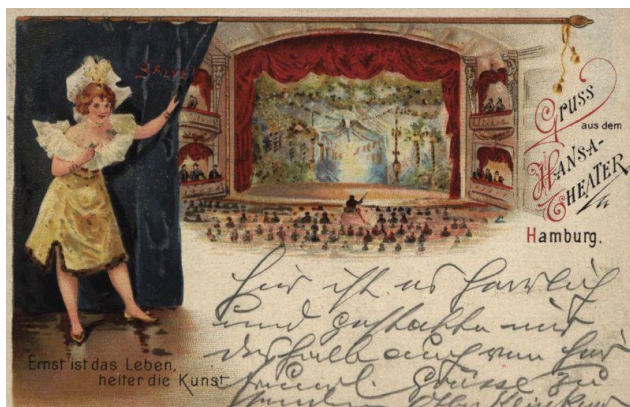 SALVE
Gruss
aus dem
HANSA-
THEATER
Hamburg.
Ernst ist das Leben,
heiter die Kunst
hier ist es herrlich
und gestatte mir
deshalb auch von hier
freundl. Grüsse zu
senden Otto